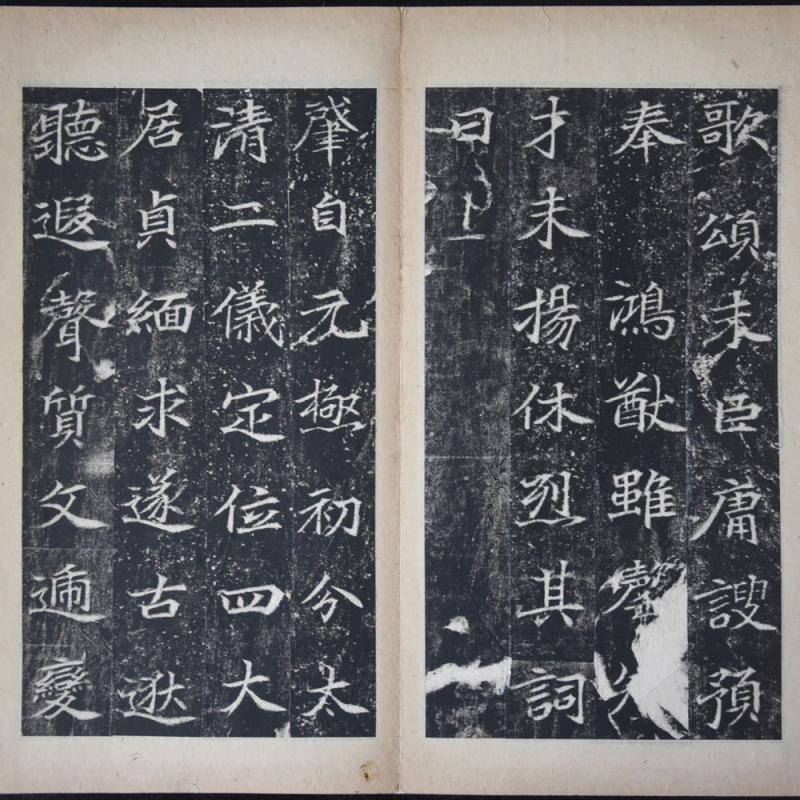 歌頌末臣庸謏預
奉鴻猷雖罄
才未揚休烈其詞
曰
肇自元極初分太
清二儀定位四大
居貞緬求遂古逖
聽遐聲質文遞變